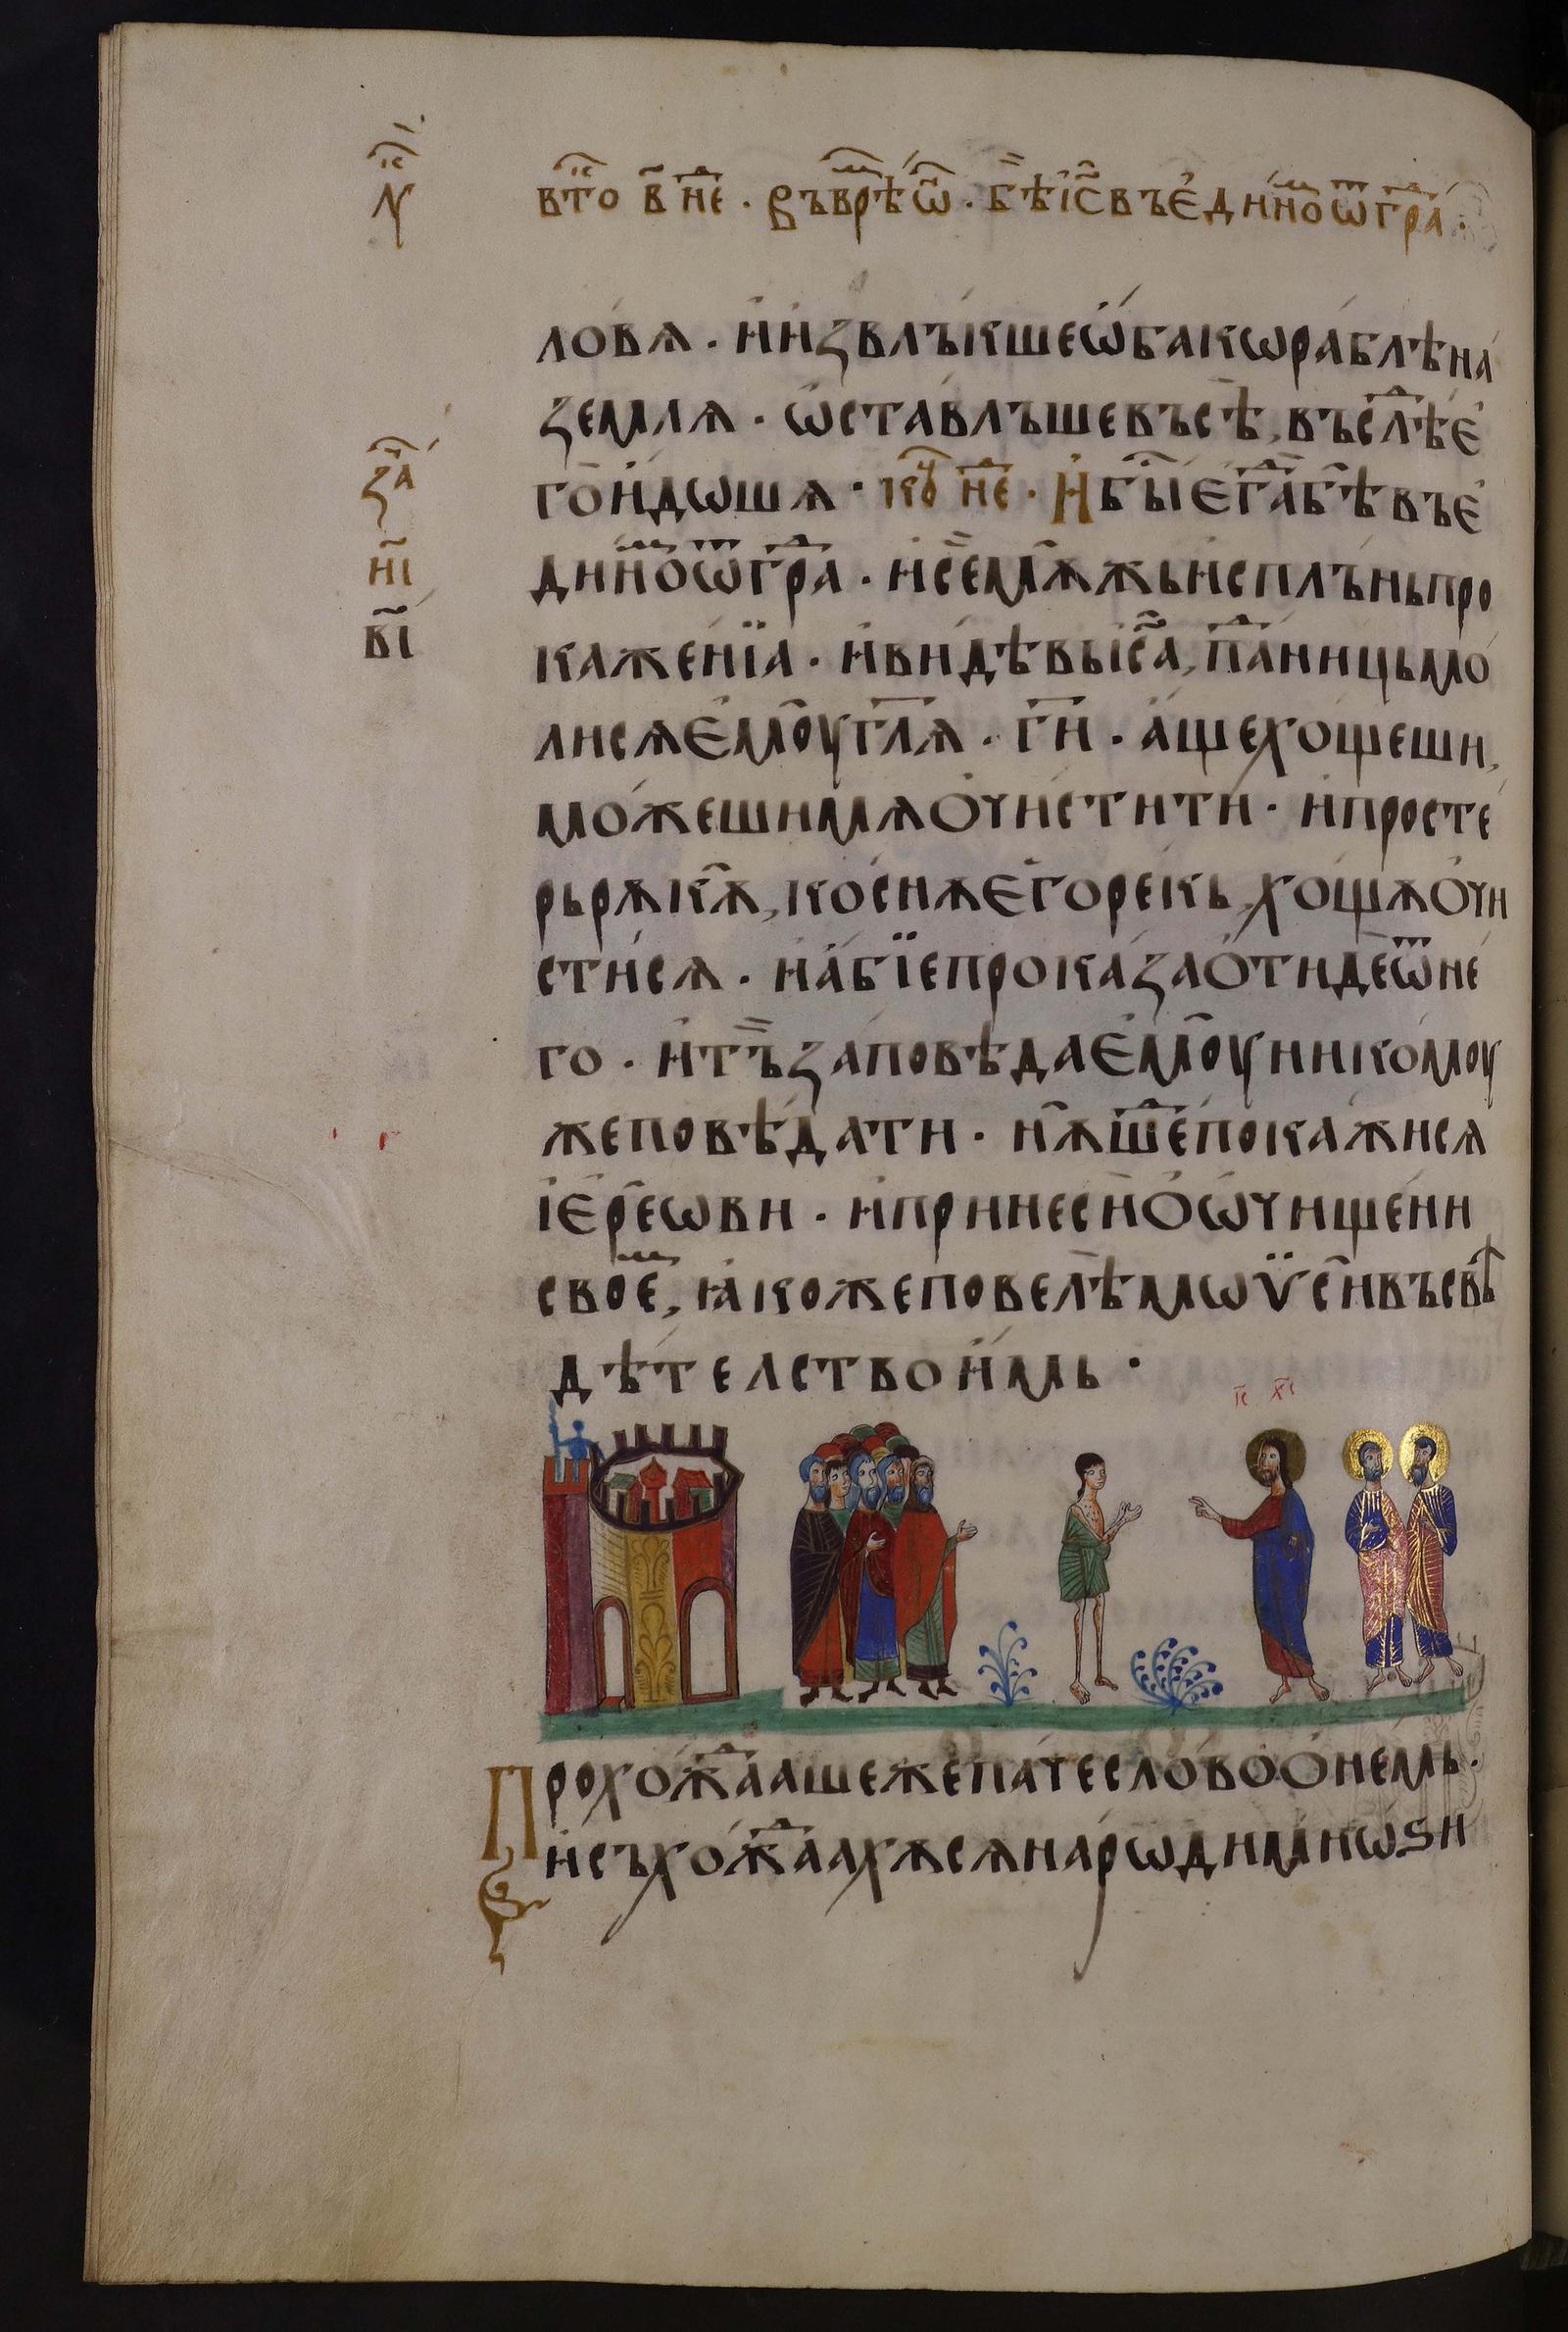 вт҃о в҃ не҃ · Въврѣѡ҃ · бѣі҃с въе҆динноѡ҃гра ·
ловѧ · и҆извлъкшеѡ҆бакѡра́блѣна́
землѧ · ѡ҆ставлъшевъсѣ, въслѣе҆
гои҆дѡшѧ · ко҃ не҃ · И҆быег҃дабѣвъе҆
динноѿгра · и҆семѫжьи҆сплъньпро
каже́нїа · и҆ви́дѣвыі҃са, па́ницьмо
лисѧе҆моуг҃лѧ · г҃и · а҆щехо́щеши,
мо́жешимѧочи́стити · и҆просте́
рьрѫкѫ, ко́снѫе҆горе́кь, хощѫочи
сти́сѧ · и҆а҆бїепрока́заоти́деѿне
го · и҆тъзаповѣдае҆моуникомоу
жеповѣ́дати · нѫше́покажисѧ
і҆ере́ѡви · и҆принесио҆ѡчище́ни
своем, ꙗ҆кожеповелѣмѡѵ̈сивъсвѣ
дѣ́телствои҆мь ·
і҃с х҃с
Прохо́жⷣаашежепа́чесло́воо҆немь ·
и҆съхо́жⷣаахѫсѧнарѡ́димнѡѕи
з҃а
н҃і
в҃і